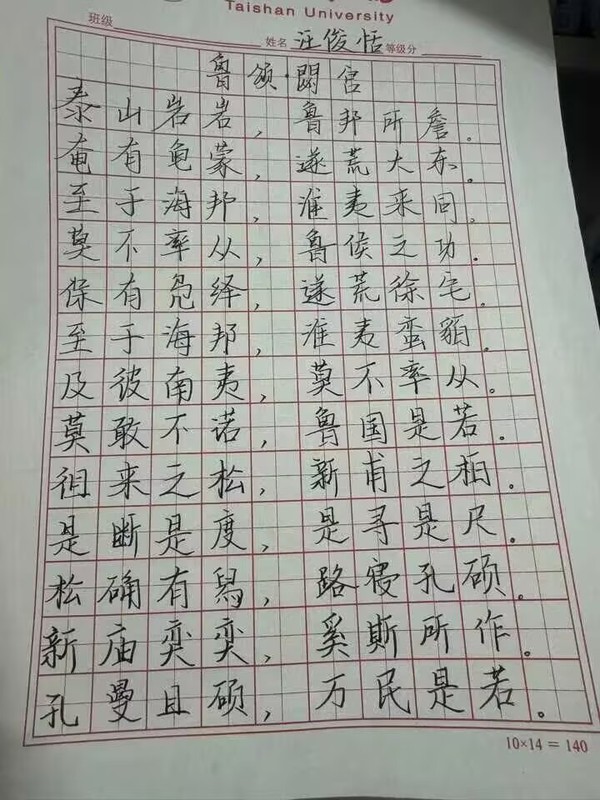 Taishan University
班级 姓名 汪俊恬 等级分
鲁颂·閟宫
泰山岩岩，鲁邦所詹。
奄有龟蒙，遂荒大东。
至于海邦，淮夷来同。
莫不率从，鲁侯之功。
保有凫绎，遂荒徐宅。
至于海邦，淮夷蛮貊。
及彼南夷，莫不率从。
莫敢不诺，鲁国是若。
徂来之松，新甫之柏。
是断是度，是寻是尺。
松桷有舄，路寝孔硕。
新庙奕奕，奚斯所作。
孔曼且硕，万民是若。
10×14=140